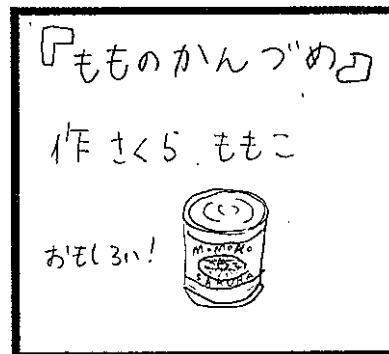 『もものかんづめ』
作 さくら ももこ
おもしろい!
MOMOKO
SAKURA